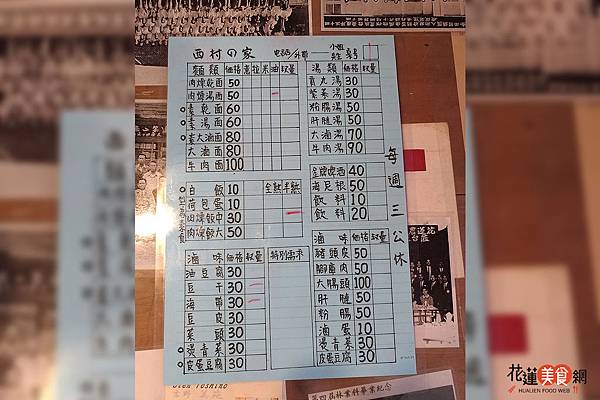 西村の家 電話/外帶 小姐 先生 號
麵類 價格 意 拉 米 油 數量
肉燥乾面 50
肉燥湯面 50
素乾面 60
素湯面 60
素大滷面 80
大滷面 80
牛肉面 100
白飯 10 全熟 半熟
荷包蛋 10
肉燥飯中 30
肉燥飯大 50
滷味 價格 數量 特別需求
油豆腐 30
豆干 30
海帶 30
豆皮 30
菜頭 30
燙青菜 30
皮蛋豆腐 30
湯類 價格 數量
貢丸湯 30
紫菜湯 30
粉腸湯 50
肝腱湯 50
大滷湯 70
牛肉湯 90
金牌啤酒 40
海尼根 50
飲料 10
飲料 20
滷味 價格 數量
豬頭皮 50
腳庫肉 50
大腸頭 100
肝腱 50
粉腸 50
滷蛋 10
燙青菜 30
皮蛋豆腐 30
每週三公休
第四屆林業科畢業紀念
花蓮美食網
HUALIEN FOOD WEB